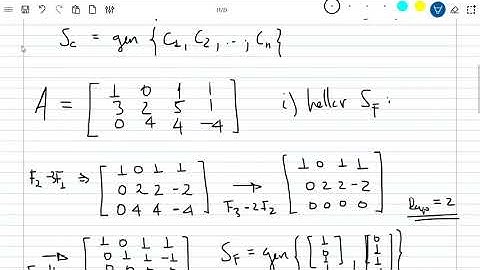 S_c = gen { C_1, C_2, ..., C_n }
A = [ 1 0 1 1
3 2 5 1
0 4 4 -4 ] i) hallar S_F :
F_2 - 3F_1 ⇒ [ 1 0 1 1
0 2 2 -2
0 4 4 -4 ] → F_3 - 2F_2 [ 1 0 1 1
0 2 2 -2
0 0 0 0 ] Rango = 2
→ [ 1 0 1 1
0 1 1 -1 S_F = gen { [ 1
0
1 , [ 0
1
1 }